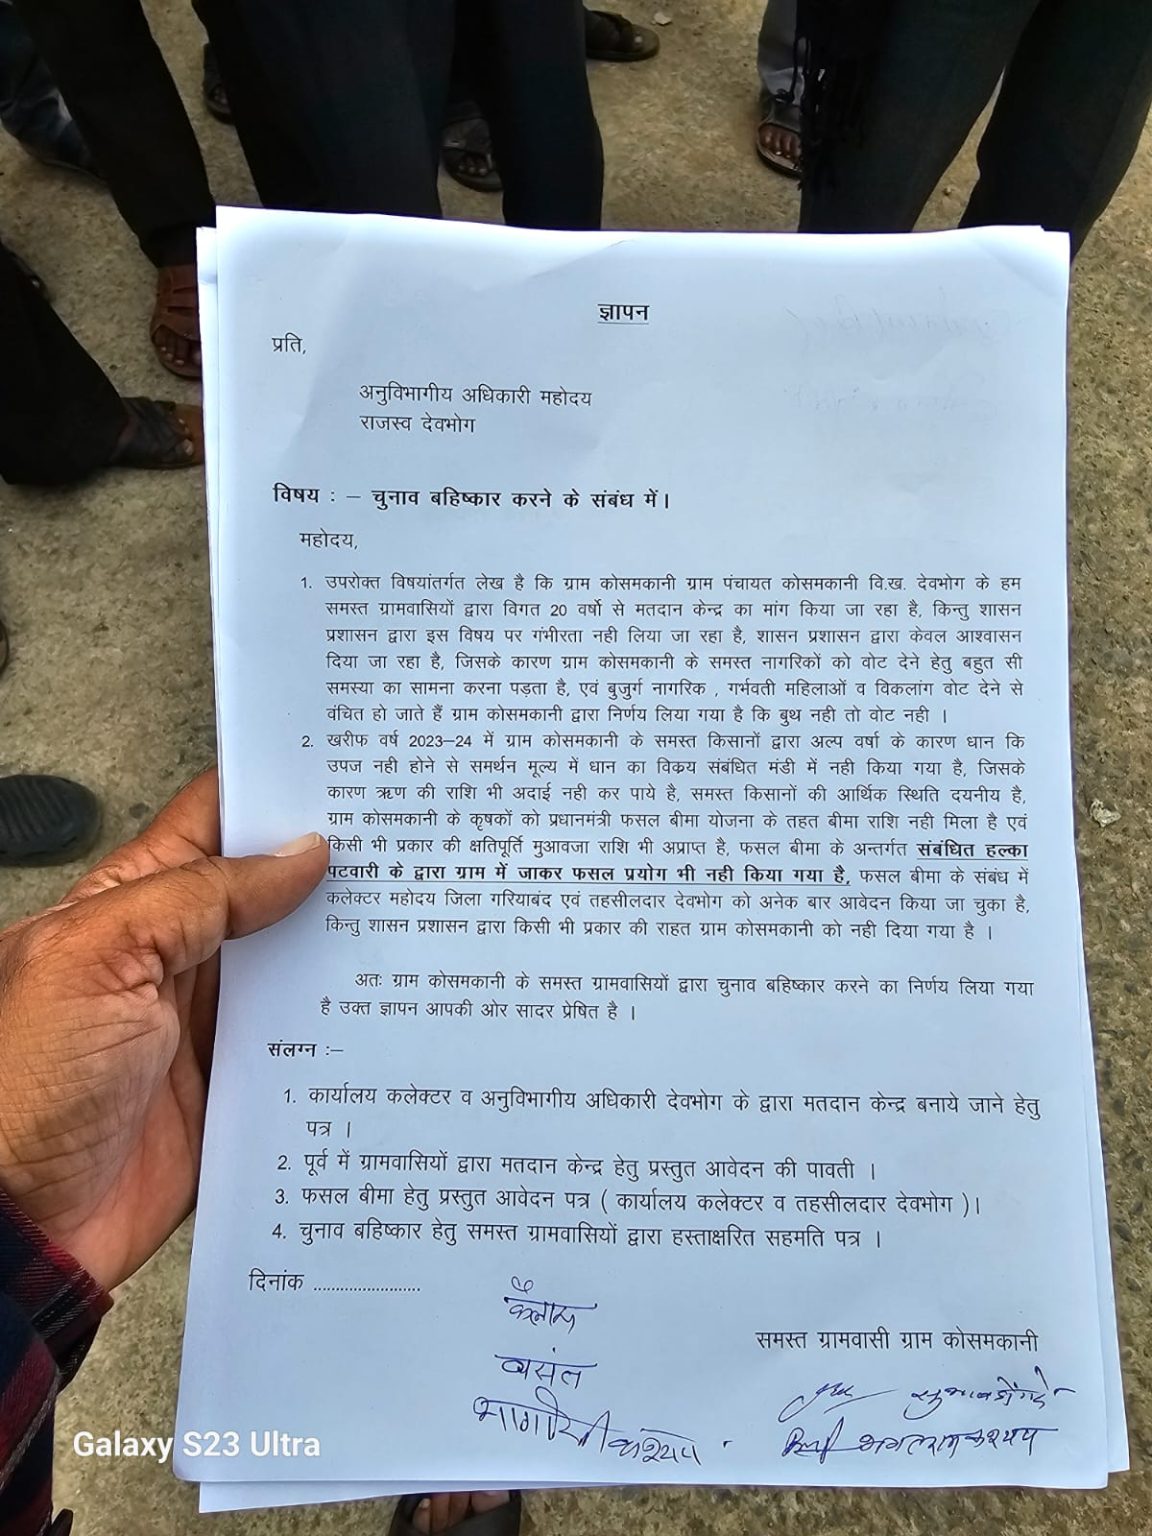 ज्ञापन
प्रति,
अनुविभागीय अधिकारी महोदय
राजस्व देवभोग
विषय : – चुनाव बहिष्कार करने के संबंध में।
महोदय,
1. उपरोक्त विषयांतर्गत लेख है कि ग्राम कोसमकानी ग्राम पंचायत कोसमकानी वि.ख. देवभोग के हम
समस्त ग्रामवासियों द्वारा विगत 20 वर्षो से मतदान केन्द्र का मांग किया जा रहा है, किन्तु शासन
प्रशासन द्वारा इस विषय पर गंभीरता नही लिया जा रहा है, शासन प्रशासन द्वारा केवल आश्वासन
दिया जा रहा है, जिसके कारण ग्राम कोसमकानी के समस्त नागरिकों को वोट देने हेतु बहुत सी
समस्या का सामना करना पड़ता है, एवं बुजुर्ग नागरिक , गर्भवती महिलाओं व विकलांग वोट देने से
वंचित हो जाते हैं ग्राम कोसमकानी द्वारा निर्णय लिया गया है कि बुथ नही तो वोट नही ।
2. खरीफ वर्ष 2023–24 में ग्राम कोसमकानी के समस्त किसानों द्वारा अल्प वर्षा के कारण धान कि
उपज नही होने से समर्थन मूल्य में धान का विक्रय संबंधित मंडी में नही किया गया है, जिसके
कारण ऋण की राशि भी अदाई नही कर पाये है, समस्त किसानों की आर्थिक स्थिति दयनीय है,
ग्राम कोसमकानी के कृषकों को प्रधानमंत्री फसल बीमा योजना के तहत बीमा राशि नही मिला है एवं
किसी भी प्रकार की क्षतिपूर्ति मुआवजा राशि भी अप्राप्त है, फसल बीमा के अन्तर्गत संबंधित हल्का
पटवारी के द्वारा ग्राम में जाकर फसल प्रयोग भी नही किया गया है, फसल बीमा के संबंध में
कलेक्टर महोदय जिला गरियाबंद एवं तहसीलदार देवभोग को अनेक बार आवेदन किया जा चुका है,
किन्तु शासन प्रशासन द्वारा किसी भी प्रकार की राहत ग्राम कोसमकानी को नही दिया गया है ।
अतः ग्राम कोसमकानी के समस्त ग्रामवासियों द्वारा चुनाव बहिष्कार करने का निर्णय लिया गया
है उक्त ज्ञापन आपकी ओर सादर प्रेषित है ।
संलग्न :–
1. कार्यालय कलेक्टर व अनुविभागीय अधिकारी देवभोग के द्वारा मतदान केन्द्र बनाये जाने हेतु
पत्र ।
2. पूर्व में ग्रामवासियों द्वारा मतदान केन्द्र हेतु प्रस्तुत आवेदन की पावती ।
3. फसल बीमा हेतु प्रस्तुत आवेदन पत्र ( कार्यालय कलेक्टर व तहसीलदार देवभोग )।
4. चुनाव बहिष्कार हेतु समस्त ग्रामवासियों द्वारा हस्ताक्षरित सहमति पत्र ।
दिनांक ........................
कैलाश
समस्त ग्रामवासी ग्राम कोसमकानी
बसंत
भागीरथी कश्यप
कश्यप
Galaxy S23 Ultra